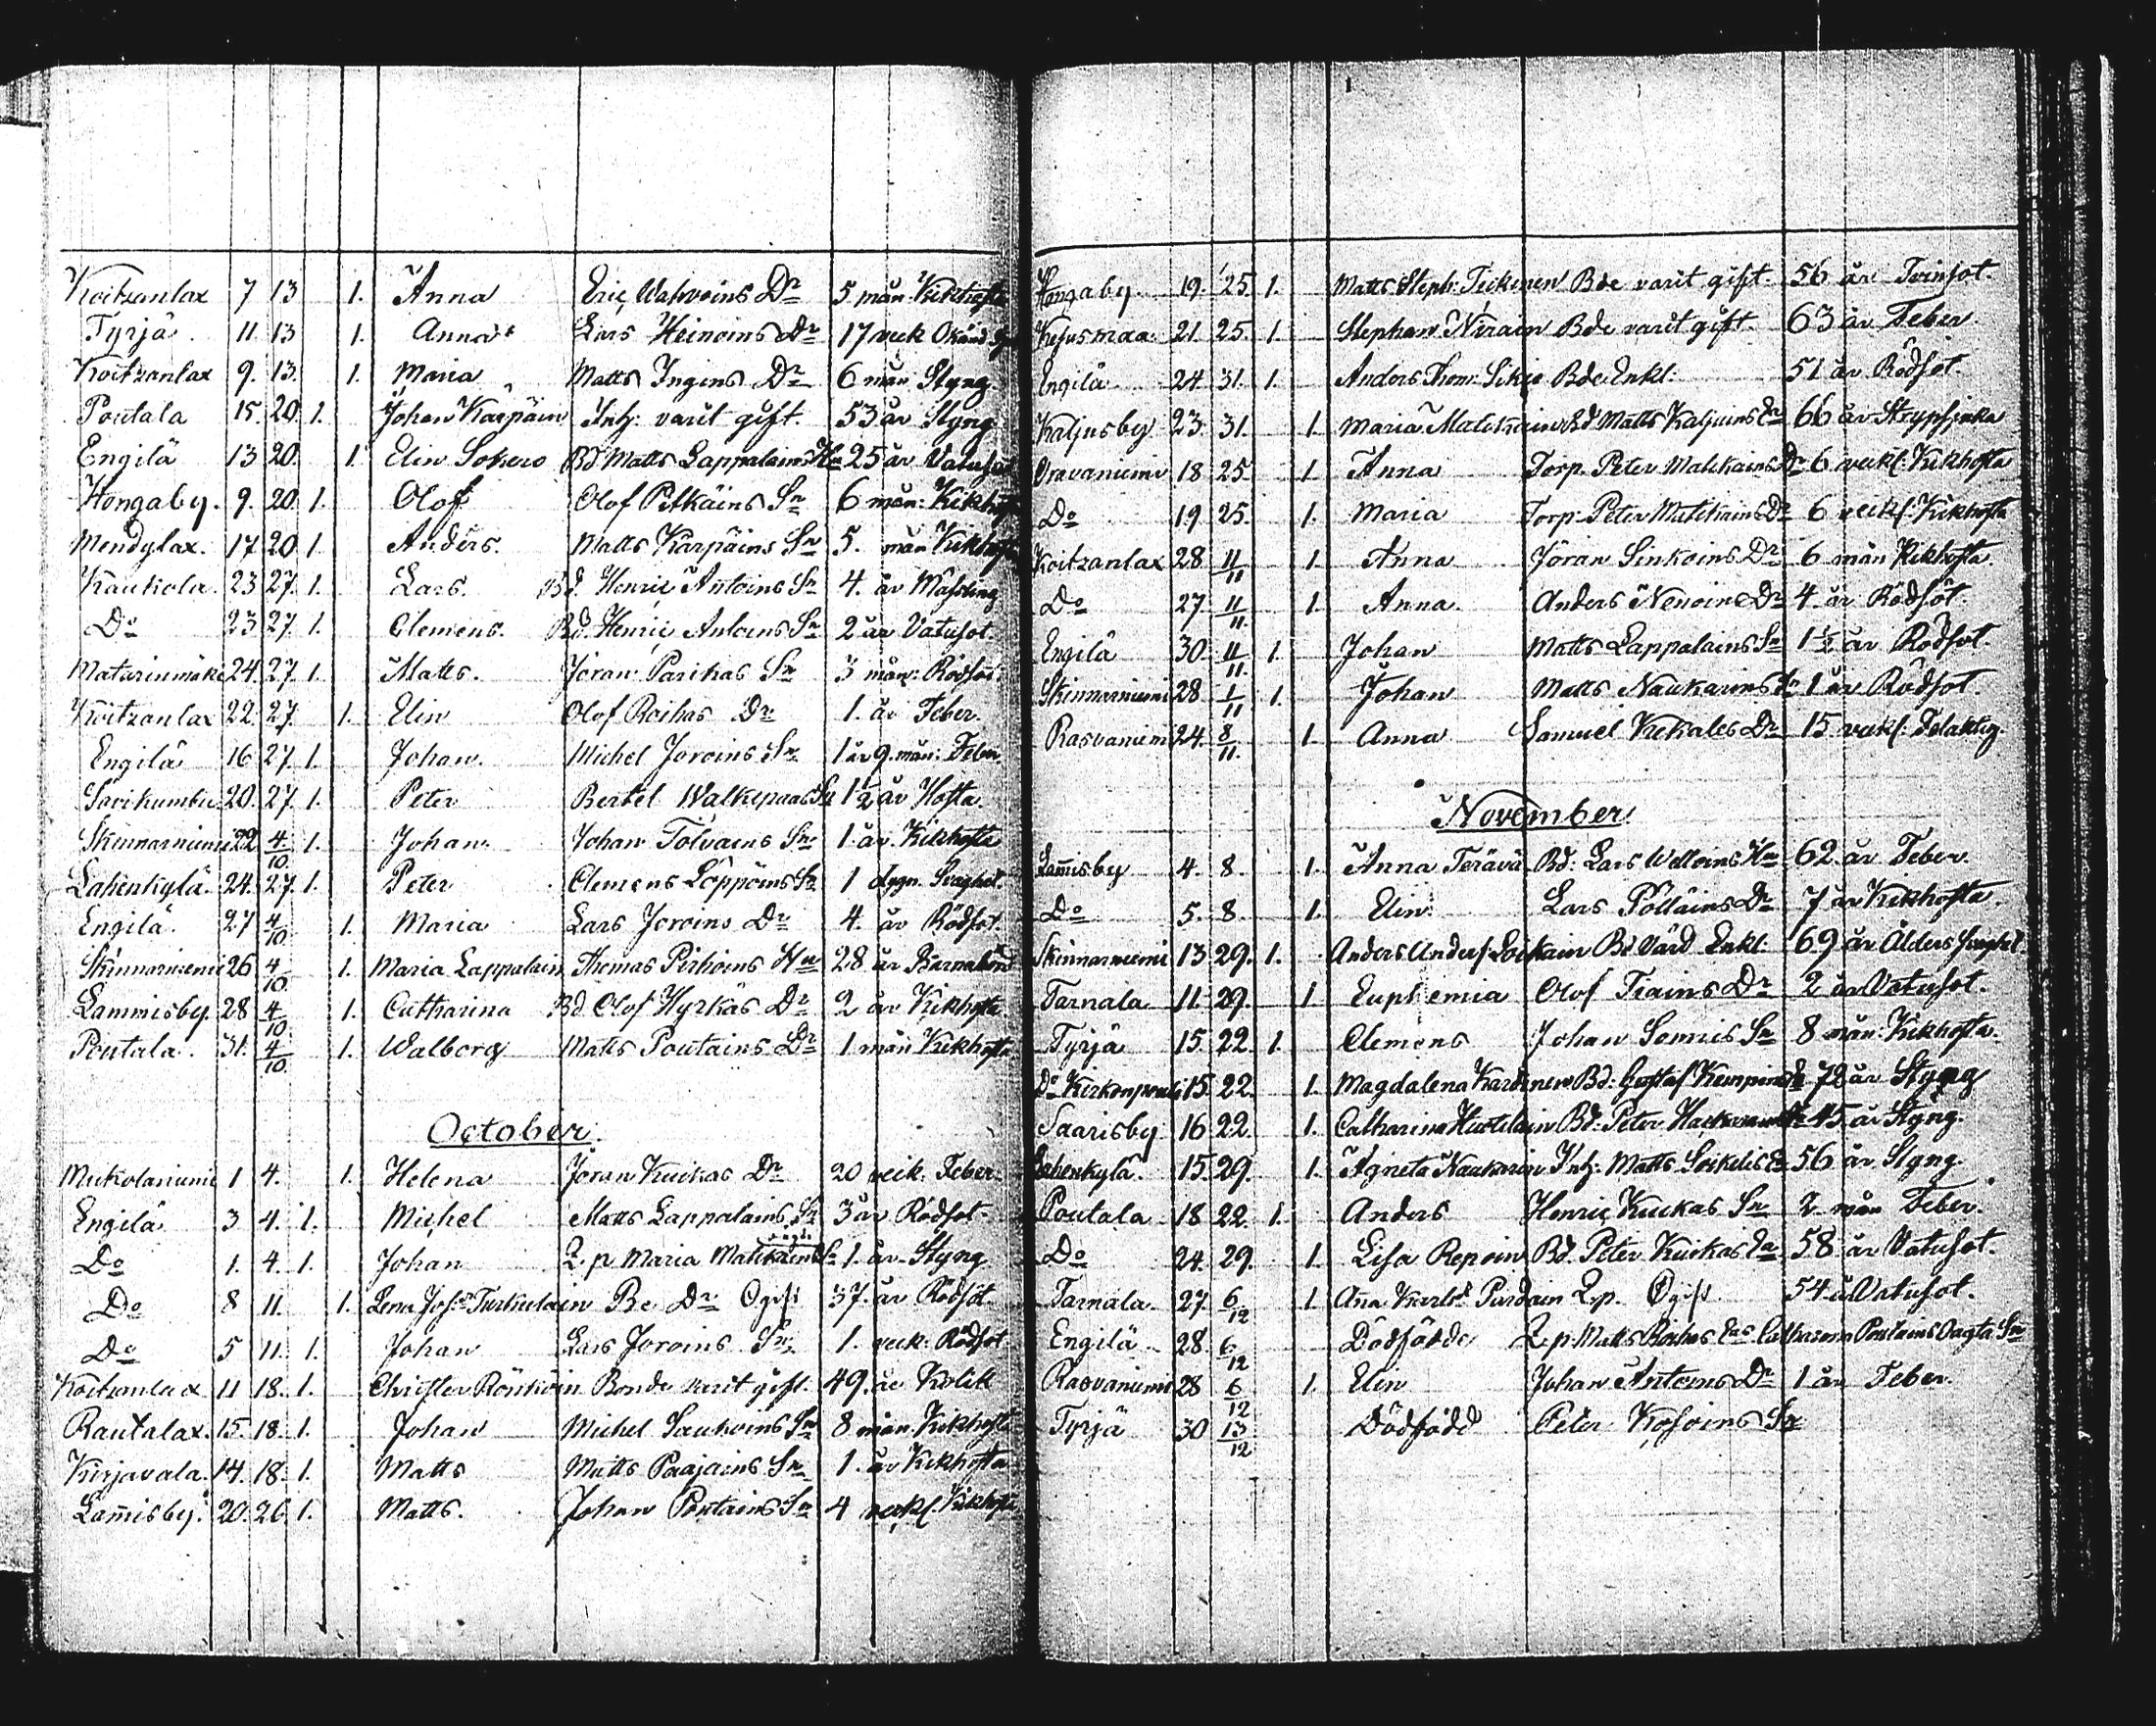 Koitzanlax 7 13 1. Anna Eric Wahvoins Dr 5 mån Kikhosta
Tyrjä 11. 13 1. Anna Lars Heinoins Dr 17 veck Okänd
Koitzanlax 9. 13. 1. Maria Matts Ingins Dr 6 mån Styng
Poutala 15. 20. 1. Johan Karpäin Inh: varit gift. 53 år Styng
Engilä 13 20. 1. Elin Sokero Bd Matts Lappalains Hu 25 år Vatusot
Hongaby. 9. 20. 1. Olof Olof Pitkäins Sn 6 mån: Kikhosta
Mendylax. 17 20 1. Anders. Matts Karpäins Sn 5. mån Kikhosta
Kaukola 23 27. 1. Lars. Bd. Henric Antoins Sn 4. år Måssling
Do 23 27. 1. Clemens. Bd. Henric Antoins Sn 2 år Vatusot.
24. 27. 1. Matts. Jöran Parikas Sn 3 mån: Rödsot.
Koitzanlax 22. 27. 1. Elin Olof Roihas Dr 1. år Feber.
Engilä 16 27. 1. Johan. Michel Joroins Sn 1 år 9. mån: Feber
Sarikumbu 20. 27. 1. Peter Bertel Walkepaas Sn 1 1/2 år Hosta.
Skinnarniemi 22 4/10 1. Johan. Johan Tolvains Sn 1. år Kikhosta
Lahenkylä 24. 27. 1. Peter Clemens Loppöins Sn 1 dygn Svaghet.
Engilä. 27 4/10 1. Maria Lars Joroins Dr 4. år Rödsot.
Skinnarniemi 26 4/10 1. Maria Lappalain Thomas Pirhoins Hu 28 år Barnabörd
Lammisby. 28 4/10 1. Catharina Bd Olof Hyrkäs Dr 2 år Kikhosta
Poutala. 31. 4/10 1. Walborg Matts Poutains Dr 1 mån Kikhosta
October.
Mukolaniemi 1 4. 1. Helena Jöran Kuikas Dr 20 veck. Feber.
Engilä 3 4. 1. Michel Matts Lappalains Sn 3 år Rödsot.
Do 1. 4. 1. Johan Q. p. Maria Matikains Sn 1. år Styng
Do 8 11. 1. Lena Turkulain Be Dr Ogift 37. år Rödsot.
Do 5 11. 1. Johan Lars Joroins Sn 1. veck. Rödsot.
Koitzanlax 11 18. 1. Christer Rönköin Bonde varit gift. 49. år Kolik
Rautalax. 15. 18. 1. Johan Michel Saukoins Sn 8 mån. Kikhosta
Kirjavala. 14. 18. 1. Matts Matts Paajains Sn 1. år Kikhosta
Lam̄isby. 20. 26. 1. Matts. Johan Poutains Sn 4 veck. Kikhosta
Hongaby 19. 25. 1. Matts Steph: Teikenen Bde varit gift. 56 år Tvinsot.
Kesusmaa 21. 25. 1. Stephan Nirain Bde varit gift. 63 år Feber.
Engilä 24 31. 1. Anders Thom: Bde Enkl: 51 år Rödsot.
Kaljusby 23. 31. 1. Maria Matikain Bd Matts Kaljuins Ea 66 år Strypsjuka
Oravaniemi 18 25. 1. Anna Torp. Peter Matikains Dr 6 veck. Kikhosta
Do 19 25. 1. Maria Torp. Peter Matikains Dr 6 veck. Kikhosta
Koitzanlax 28 11/11 1. Anna Jöran Sinkoins Dr 6 mån Kikhosta.
Do 27. 11/11. 1. Anna. Anders Nenoins Dr 4. år Rödsot.
Engilä 30. 11/11. 1. Johan Matts Lappalains Sn 1 1/2 år Rödsot
Skinnarniemi 28 1/11 1. Johan Matts Naukarins Sn 1 år Rödsot.
Rasvaniemi 24. 8/11. 1. Anna Samuel Kekales Dr 15. veck.
November
Lam̄isby 4. 8. 1. Anna Terävä Bd: Lars Weltoins Hu 62. år Feber.
Do 5. 8. 1. Elin Lars Pöllains Dr 7 år Kikhosta.
Skinnarniemi 13. 29. 1. Anders Anders: Loikain Bd Värd Enkl. 69 år Ålders svaghet
Tarnala 11. 29. 1. Euphemia Olof Tiains Dr 2 år Vatusot.
Tyrjä 15. 22. 1. Clemens Johan Sonnis Sn 8 mån: Kikhosta.
Do 15. 22. 1. Magdalena Bd: Gustaf 72 år Styng
Saarisby 16 22. 1. Catharina Bd: Peter 45 år Styng.
Lahenkylä. 15. 29. 1. Agneta Naukarin Inh: Matts Soikelis Ea 56 år Styng.
Poutala 18 22 1. Anders Henric Kuikas Sn 2 mån Feber.
Do 24. 29. 1. Lisa Repoin Bd. Peter Kuikas Ea 58 år Vatusot.
Tarnala. 27. 6/12 1. Ana Karlsd Q.p. Ogift 54 år Vatusot.
Engilä 28. 6/12 Dödfödde Q.p. Matts Catharina Poutains Oägta Sn
Rasvaniemi 28 6/12 1. Elin Johan Antoins Dr 1 år Feber.
Tyrjä 30 13/12 Dödfödd Peter Kosoins Sn